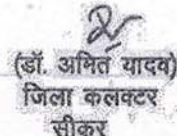 (डॉ. अमित यादव)
जिला कलक्टर
सीकर